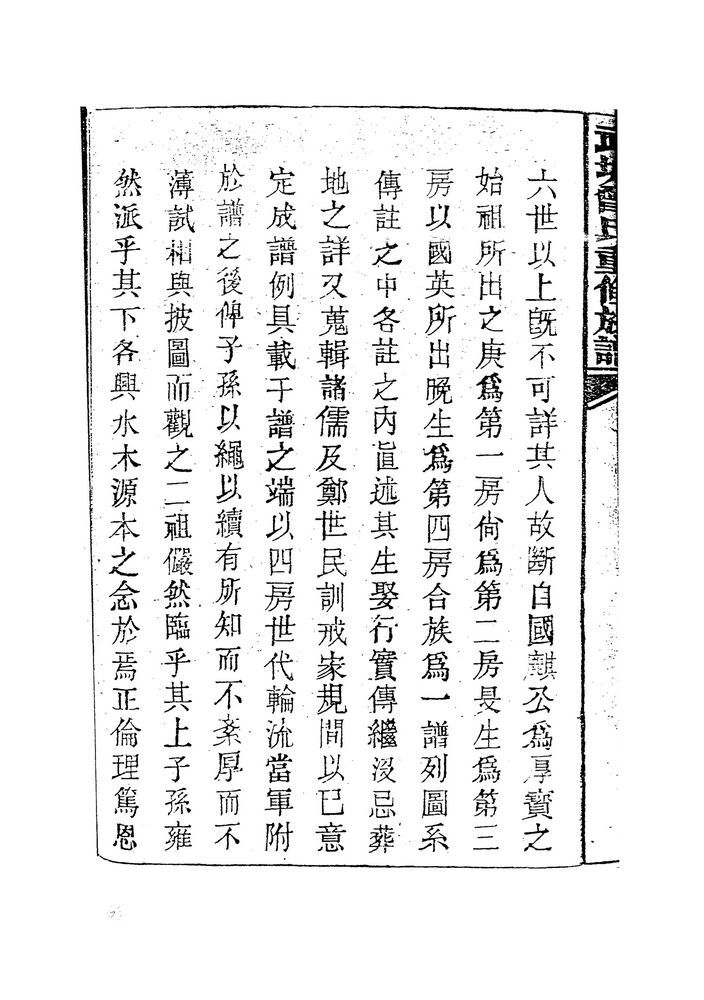 曾氏重修族譜
六世以上旣不可詳其人故斷自國麒公爲厚寳之
始祖所出之庚爲第一房尙爲第二房旻生爲第三
房以國英所出晚生爲第四房合族爲一譜列圖系
傳註之中各註之內直述其生娶行實傳繼沒忌葬
地之詳又蒐輯諸儒及鄭世民訓戒家規間以已意
定成譜例具載于譜之端以四房世代輪流當軍附
於譜之後俾子孫以繩以續有所知而不紊厚而不
薄試相與披圖而觀之二祖儼然臨乎其上子孫雍
然派乎其下各興水木源本之念於焉正倫理篤恩